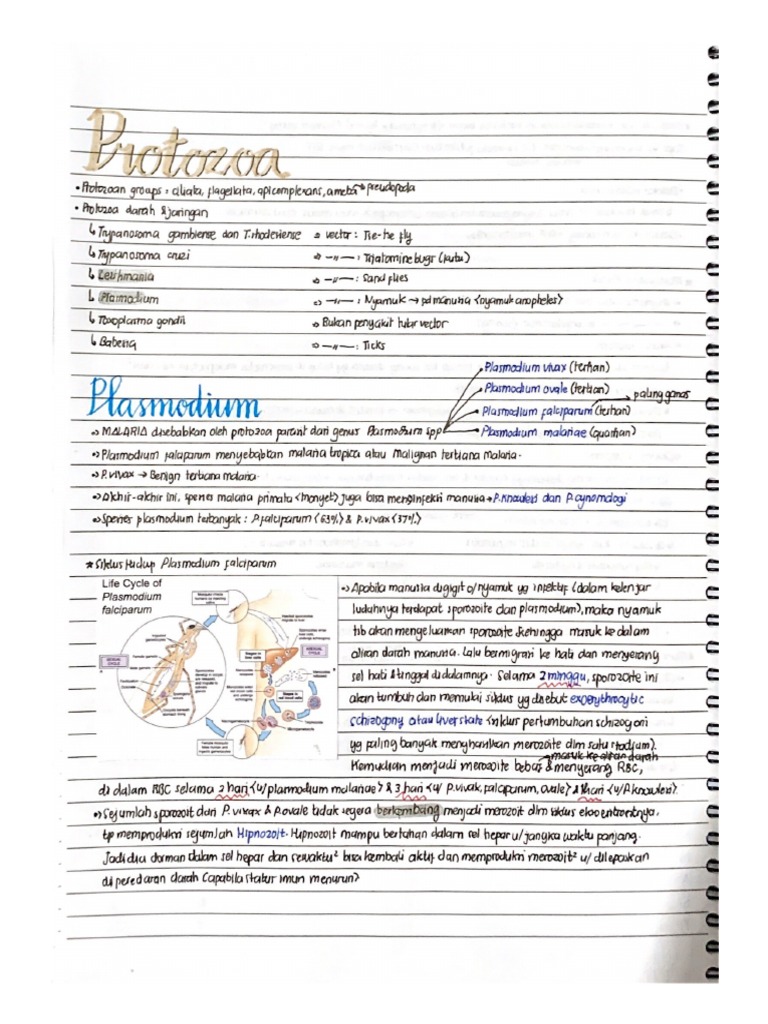 Protozoa
• Protozoan groups : ciliata, flagellata, apicomplexans, ameba → pseudopoda
• Protozoa darah & jaringan
↳ Trypanosoma gambiense dan T. rhodeiense → vector : Tse-tse fly
↳ Trypanosoma cruzi → —"— : Triatomine bugs (kutu)
↳ Leishmania → —"— : Sand flies
↳ Plasmodium → —"— : Nyamuk → pd manusia <nyamuk anopheles>
↳ Toxoplasma gondii → Bukan penyakit tular vector
↳ Babesia → —"— : Ticks
Plasmodium
Plasmodium vivax (tertian)
Plasmodium ovale (tertian)
Plasmodium falciparum (tertian) → paling ganas
Plasmodium malariae (quartan)
→ MALARIA disebabkan oleh protozoa parasit dari genus Plasmodium spp
→ Plasmodium falciparum menyebabkan malaria tropica atau Malignan tertiana Malaria.
→ P. vivax → Benign tertiana malaria.
→ Akhir-akhir ini, spesies malaria primata <monyet> juga bisa menginfeksi manusia → P. knowlesi dan P. cynomolgi
→ Spesies plasmodium terbanyak : P. falciparum <63%> & P. vivax <37%>
★ Siklus Hidup Plasmodium falciparum
Life Cycle of
Plasmodium
falciparum
SEXUAL
CYCLE
ASEXUAL
CYCLE
→ Apabila manusia digigit o/ nyamuk yg infektif (dalam kelenjar
ludahnya terdapat sporozoite dan plasmodium), maka nyamuk
tsb akan mengeluarkan sporozoite sehingga masuk ke dalam
aliran darah manusia. Lalu bermigrasi ke hati dan menyerang
sel hati & tinggal di dalamnya. Selama 2 minggu, sporozoite ini
akan tumbuh dan memulai siklus yg disebut exoerythrocytic
schizogony atau liver state <siklus pertumbuhan schizogoni
yg paling banyak menghasilkan merozoite dlm satu stadium>.
→ masuk ke aliran darah
Kemudian menjadi merozoite bebas & menyerang RBC,
di dalam RBC selama 2 hari <u/ plasmodium malariae> & 3 hari <u/ P. vivak, falciparum, ovale> & 1 hari <u/ P. knowlesi>.
→ Sejumlah sporozoit dari P. vivax & P. ovale tidak segera berkembang menjadi merozoit dlm siklus eksoeritrositnya,
tp memproduksi sejumlah Hipnozoit. Hipnozoit mampu bertahan dalam sel hepar u/ jangka waktu panjang.
Jadi dia dorman dalam sel hepar dan sewaktu² bisa kembali aktif dan memproduksi merozoit² u/ dilepaskan
di peredaran darah <apabila status imun menurun>